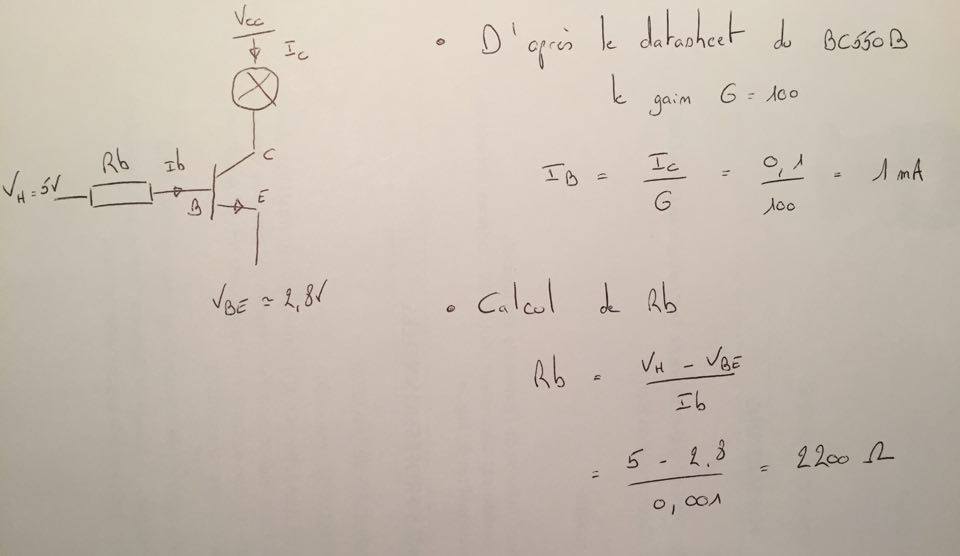 Vcc
Ic
C
Rb
Ib
VH = 5V
B
E
VBE ≃ 2,8V
• D'après le datasheet du BC550B
le gain G = 100
IB = Ic / G = 0,1 / 100 = 1 mA
• Calcul de Rb
Rb = VH - VBE / Ib
= 5 - 2,8 / 0,001 = 2200 Ω